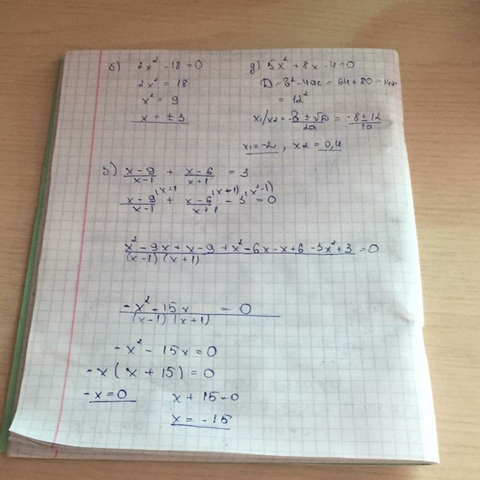 б) 2x² - 18 = 0
2x² = 18
x² = 9
x = ± 3
д) 5x² + 8x - 4 = 0
D = b² - 4ac = 64 + 80 = 144
= 12²
x₁/x₂ = -b ± √D / 2a = -8 ± 12 / 10
x₁ = -2, x₂ = 0,4
з) x - 9 / x - 1 + x - 6 / x + 1 = 3
x - 9 / x - 1 (x+1 + x - 6 / x + 1 (x+1) - 3 (x²-1) = 0
x² - 9x + x - 9 + x² - 6x - x + 6 - 3x² + 3 / (x-1) (x+1) = 0
-x² - 15x / (x-1) (x+1) = 0
-x² - 15x = 0
-x (x + 15) = 0
-x = 0 x + 15 = 0
x = -15